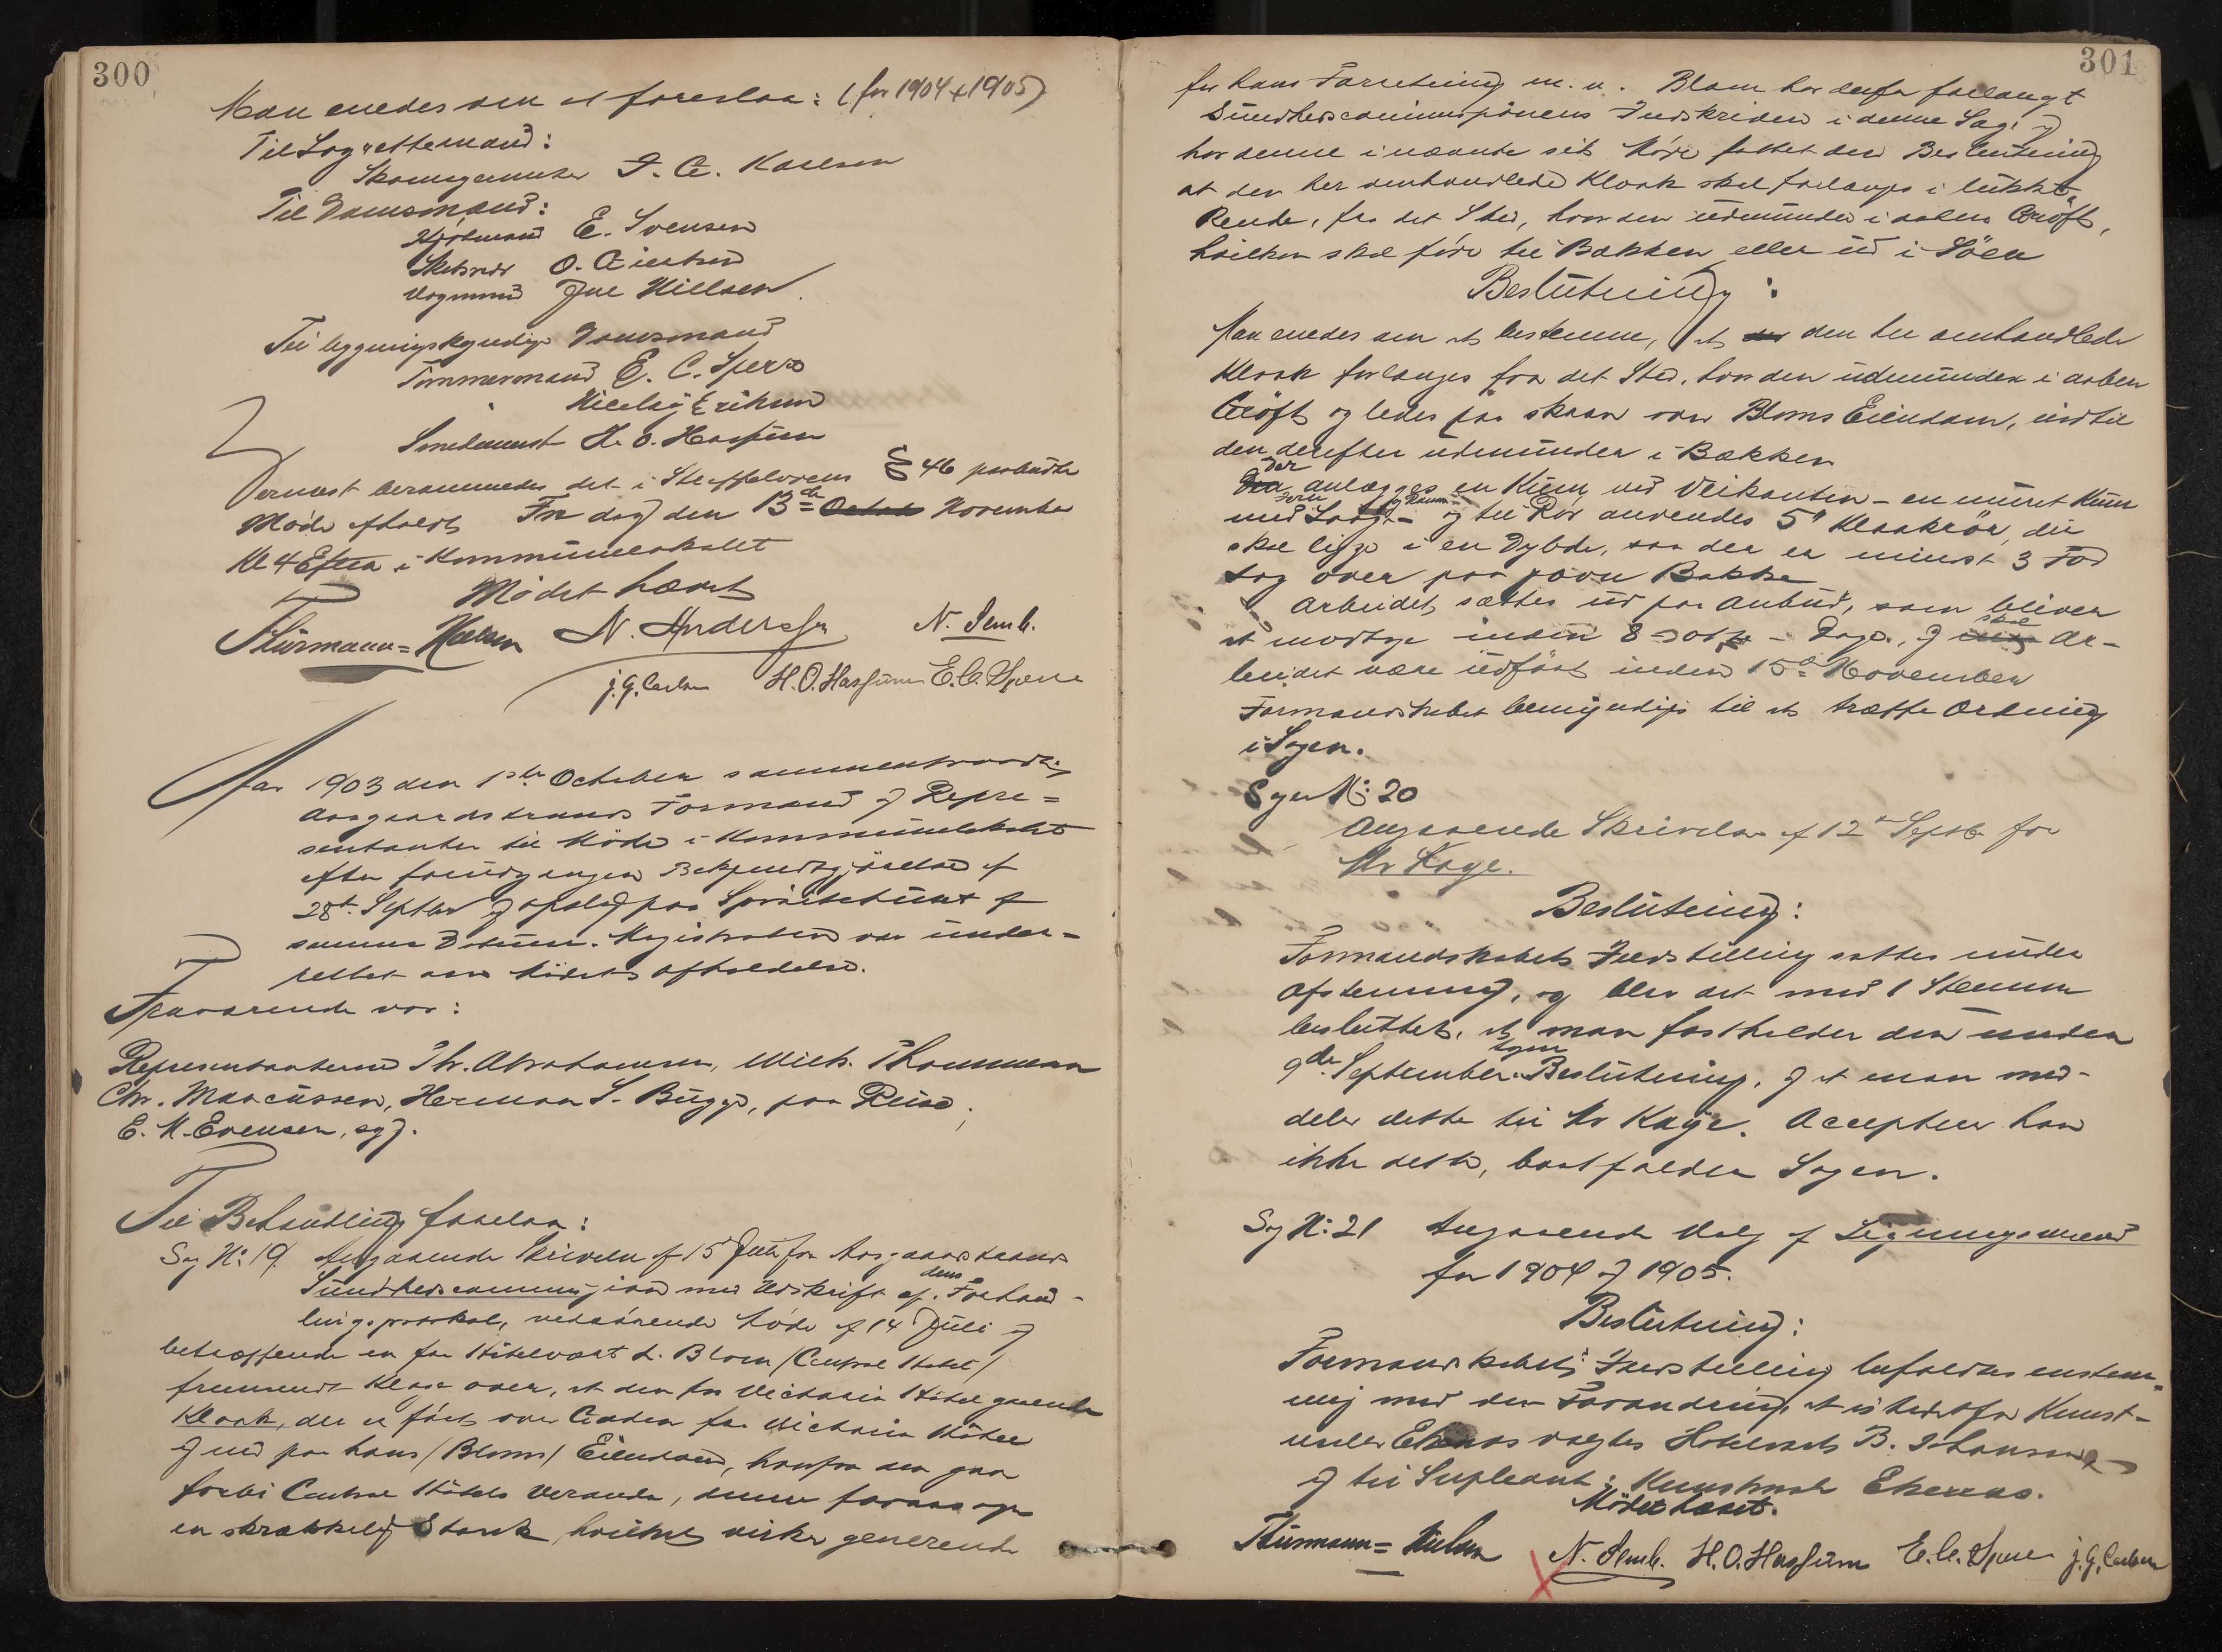 300
Man enedes om at foreslaa: (for 1904 + 1905)
Til Lagrettemand:
Skomagermester J. G. Karlsen
Til Domsmænd:
E. Svensen
O.
Vognmand Jul Nielsen.
Til bygningskyndige Domsmænd
Tømmermand E. C. Sperre
Nicolay Eriksen
H. O. Hasfum
Dernæst berammedes det i Straffelovens § 46 paabudte
Møde afholdt Fredag den 13de November
Kl 4 Efterm i Kommunelokalet
Mødet hævet
Thürmann=Nielsen N. Anderssen N. Semb.
J. G. Carlsen H. O. Hasfum E. C. Sperre
Aar 1903 den 1ste October sammentraadte
Aasgaardstrands Formænd og Repre=
sentanter til Møde i Kommunelokalet
efter forudgangen Bekjendtgjørelse af
28de Septbr og opslag paa Sprøitehuset af
samme Datum. Magistraten var under=
rettet om Mødets afholdelse.
Fraværende var:
Representanterne Th. Abrahamsen, Mich. Thommesen
Chr. Marcussen, Herman S. Bügge, paa Reise,
E. M. Evensen, syg.
Til Behandling forelaa:
Sag N: 19. Angaaende Skrivelse af 15 Juli fra Aasgaardstrands
Sundhedscommission med Udskrift af dens Forhand-
lingsprotokol, vedrørende Møde af 14 Juli og
betræffende en fra Hotelvært L. Blom /Central Hotel/
fremsendt Klage over, at den fra Victoria Hotel gaaende
Kloak, der er ført over Gaden fra Victoria Hotel
og ned paa hans /Bloms/ Eiendom, hvorfra den gaar
forbi Central Hotels Veranda, denne foraarsager
en skrækkelig Stank, hvilket virker generende
301
for hans Forretning m. v. Blom har derfor forlangt
Sundhedscommissionens Indskriden i denne Sag, og
har denne i nævnte sit Møde fattet den Beslutning
at den her omhandlede Kloak skal forlanges i lukket
Rende, fra det Sted, hvor den udmunder i aaben Grøft,
hvilken skal føre til Bækken eller ud i Søen
Beslutning:
Man enedes om at bestemme, at den her omhandlede
Kloak forlanges fra det Sted, hvor den udmunder i aaben
Grøft og ledes paa skraa over Bloms Eiendom, indtil
den derefter udmunder i Bækken
Der anlægges en Kum ved Veikanten - en muret Kum
med - og til Rør anvendes 5" Kloakrør, der
skal ligge i en Dybde, saa der er mindst 3 Fod
Lag over paa jævn Bakke
Arbeidet sættes ud paa Anbud, som bliver
at modtage inden 8 - otte - Dage, og skal Ar-
beidet være udført inden 15de November
Formandskabet bemyndiges til at træffe Ordning
i Sagen.
Sag N: 20
Angaaende Skrivelse af 12te Septbr fra
Mr Kaye.
Beslutning:
Formandskabets Indstilling sattes under
Afstemning, og blev det med 1 Stemme
besluttet, at man fastholder den under
9de September tagne Beslutning, og at man med-
deler dette til Mr Kaye. Accepterer han
ikke dette, bortfalder Sagen.
Sag N: 21 Angaaende Valg af Ligningsmænd
for 1904 og 1905.
Beslutning:
Formandskabets Indstilling bifaldes enstem-
mig med den Forandring, at istedetfor Kunst-
maler Ekenæs valgtes Hotelvært B. Johansen
og til Supleant: Kunstmaler Ekenæs.
Mødet hævet.
Thürmann=Nielsen N. Semb. H. O. Hasfum E. C. Sperre J. G. Carlsen